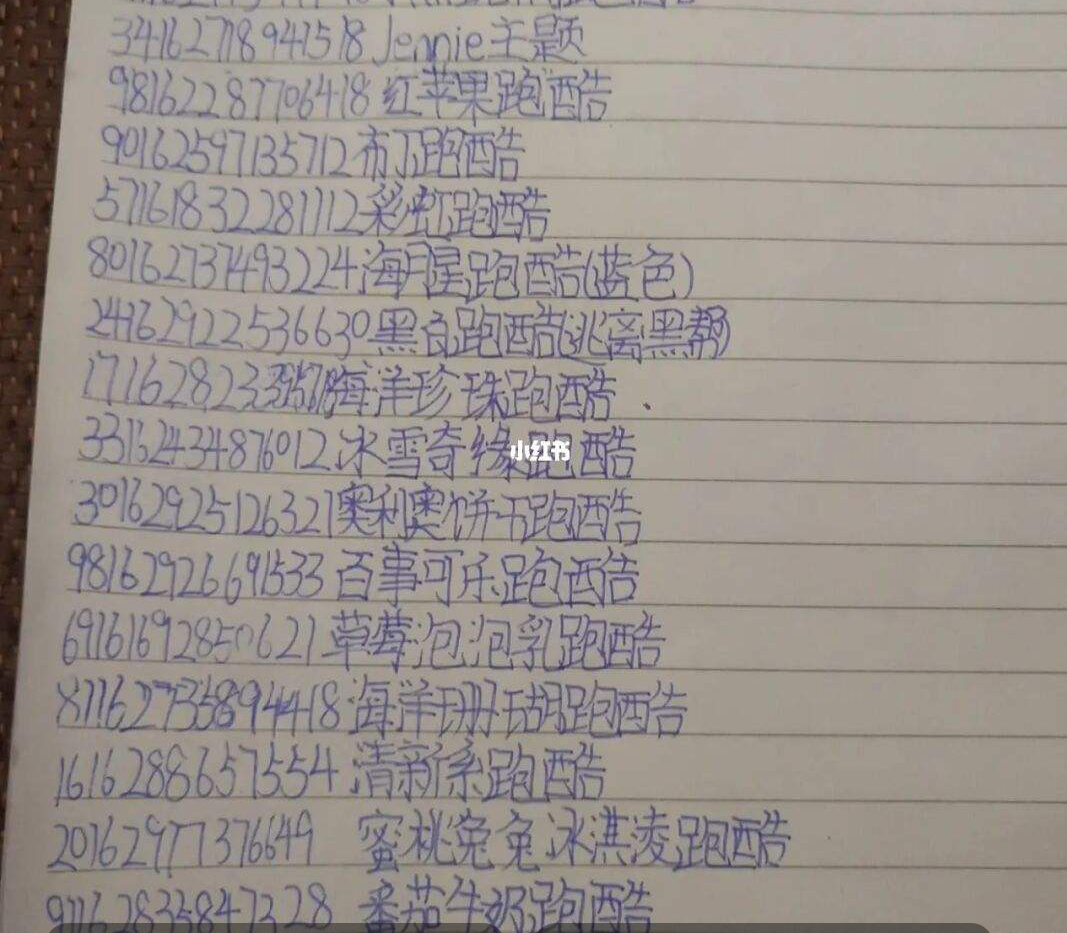 34162718941518 Jennie主题
98162287706418 红苹果跑酷
90162597135712 布丁跑酷
57161832281112 彩虹跑酷
80162737493224 海星跑酷(蓝色)
24162922536630 黑白跑酷(逃离黑帮)
海洋珍珠跑酷
33162434876012 冰雪奇缘跑酷
小红书
30162925126321 奥利奥饼干跑酷
98162926691533 百事可乐跑酷
69161692850621 草莓泡泡乳跑酷
海洋珊瑚跑酷
1616288657554 清新系跑酷
20162977376649 蜜桃兔兔冰淇凌跑酷
91162835847328 番茄牛奶跑酷